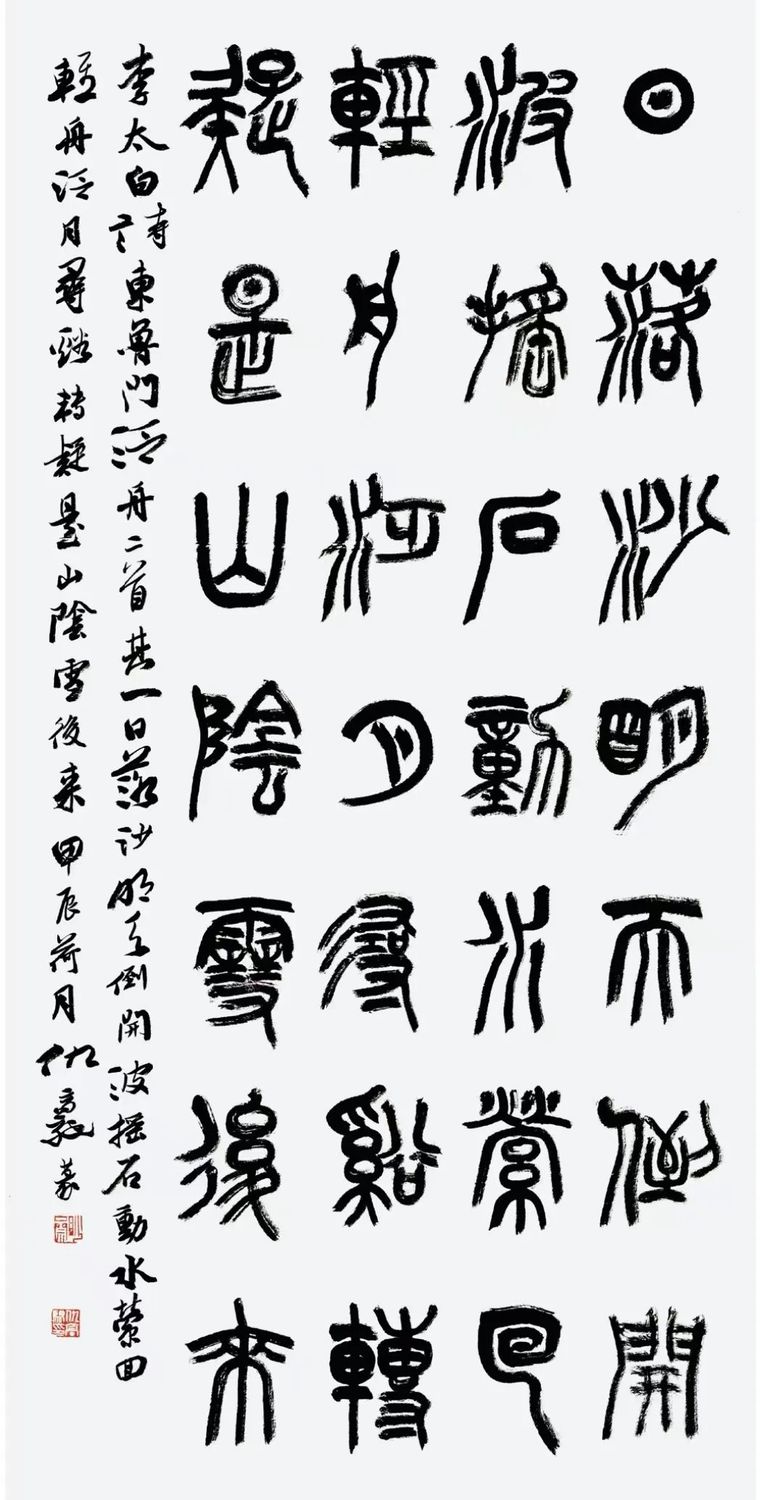 日落沙明天倒開
波搖石動水縈回
輕舟泛月尋谿轉
疑是山陰雪後來
李太白詩東魯門泛舟二首其一日落沙明天倒開波搖石動水縈回
輕舟泛月尋谿轉疑是山陰雪後來甲辰荷月仇高羲篆